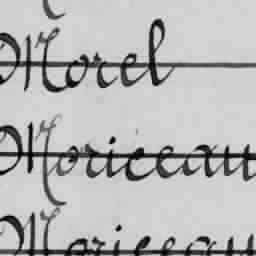 Morel
Moriceau
Moriceau